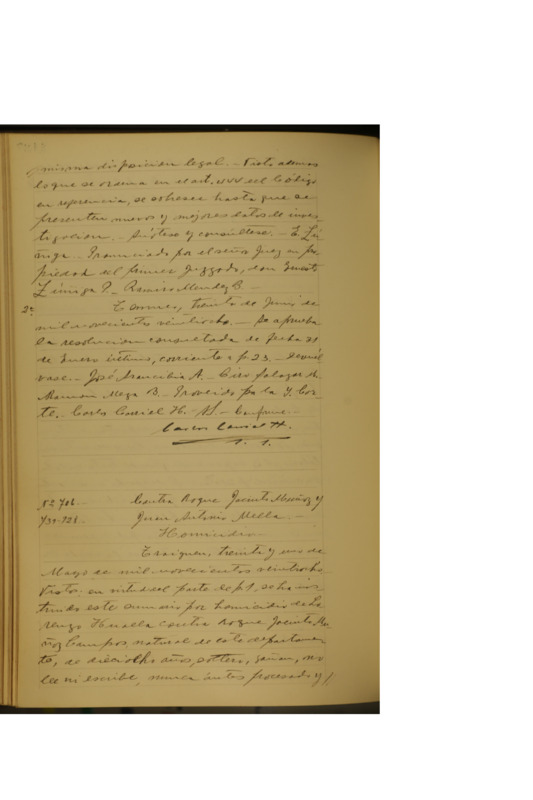 misma disposicion legal.- Visto ademas
lo que se ordena en el art. del Código
en referencia, se sobresee hasta que se
presenten nuevos y mejores datos de inves-
tigacion.- Anótese y consúltese.- E. Zú-
ñiga.- Pronunciado por el señor Juez en pro-
piedad del primer Juzgado, don Ernesto
Zúniga P.- Ramiro Mendez B.-
2ª Temuco, treinta de Junio de
mil novecientos veintiocho.- Se aprueba
la resolucion consultada de fecha 31
de Enero último, corriente a f. 23.- Devuél
vase.- José Arancibia A.- Ciro Salazar M.
Roman Mega B.- Proveido por la I. Cor-
te.- Carlos Corail H. - Conforme-
Carlos H.
S. S.
Nº 706.- Contra Roque Jacinto Muñoz y
739-721. Juan Antonio Mella.-
Homicidio-
Traiguen, treinta y uno de
Mayo de mil novecientos veintiocho
Vistos: en virtud del parte de f. 1, se ha ins-
truido este sumario por homicidio de Lo
renzo contra Roque Jacinto Mu
ñoz Campos, natural de este departamen-
to, de dieciocho años, soltero, gañan, no
lee ni escribe, nunca ántes procesado y